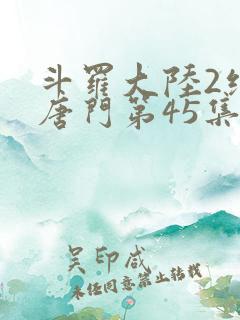 斗羅大陸2絕
唐門第45集
吴印咸
未经同意禁止转载